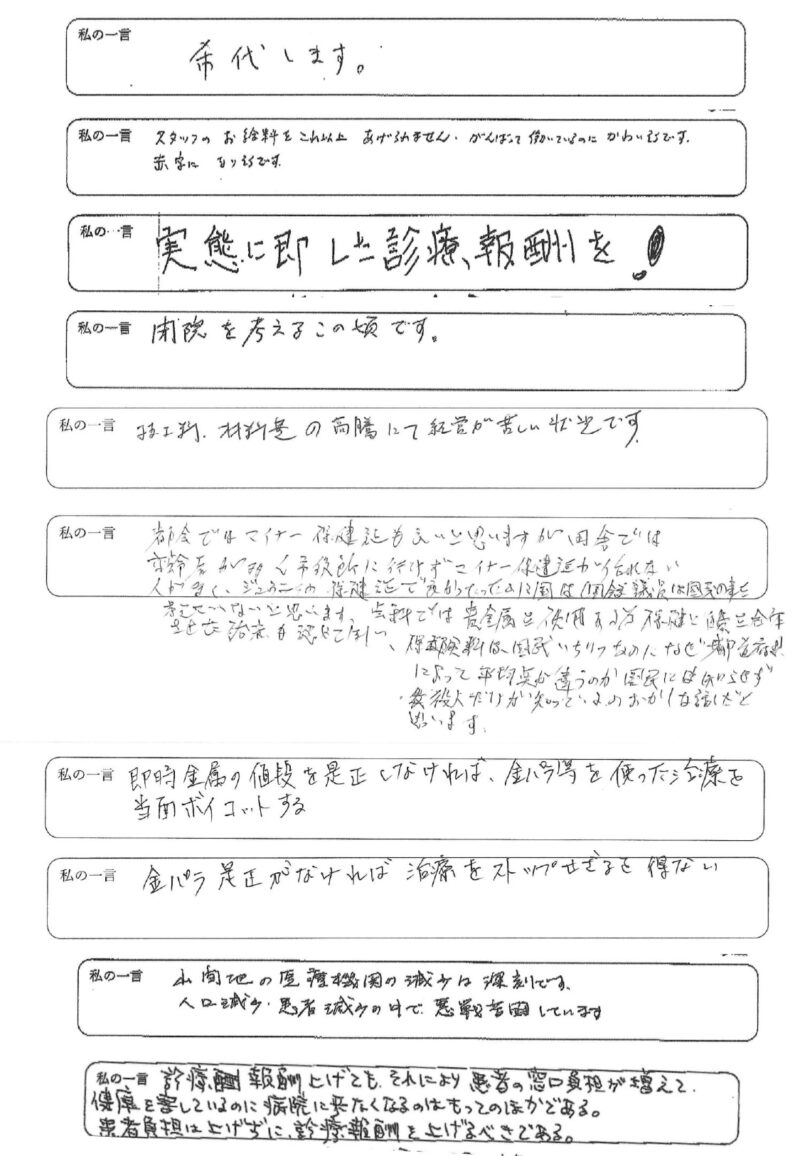 私の一言
希代します。
私の一言
スタッフの お給料を これ以上 あげられません。がんばって働いているのに かわいそうです。
赤字に なりそうです。
私の一言
実態に即した診療報酬を!
私の一言
閉院を考えるこの頃です。
私の一言
技工料、材料費の高騰にて経営が苦しい状況です。
私の一言
都会ではマイナー保健証も良いと思いますが田舎では
高齢者が多く市役所に行けずマイナー保健証が作れない
人が多く、 保健証で 国は 国会議員は国民の事を
考えていないと思います。歯科では貴金属を使用する為 保健
治療を認めて
保険料は、国民 なのに なぜ都道府県
によって平均点が違うのか国民には知らせず
役人だけが知っている おかしな話だと
思います。
私の一言
即時金属の値段を是正しなければ、金パラ等を使った治療を
当面ボイコットする
私の一言
金パラ是正がなければ 治療をストップせざるを得ない
私の一言
山間地の医療機関の減少は深刻です。
人口減少・患者減少の中で、悪戦苦闘しています
私の一言
診療 報酬上げても、それにより患者の窓口負担が増えて、
健康を害しているのに病院に来なくなるのはもってのほかである。
患者負担は上げずに、診療報酬を上げるべきである。